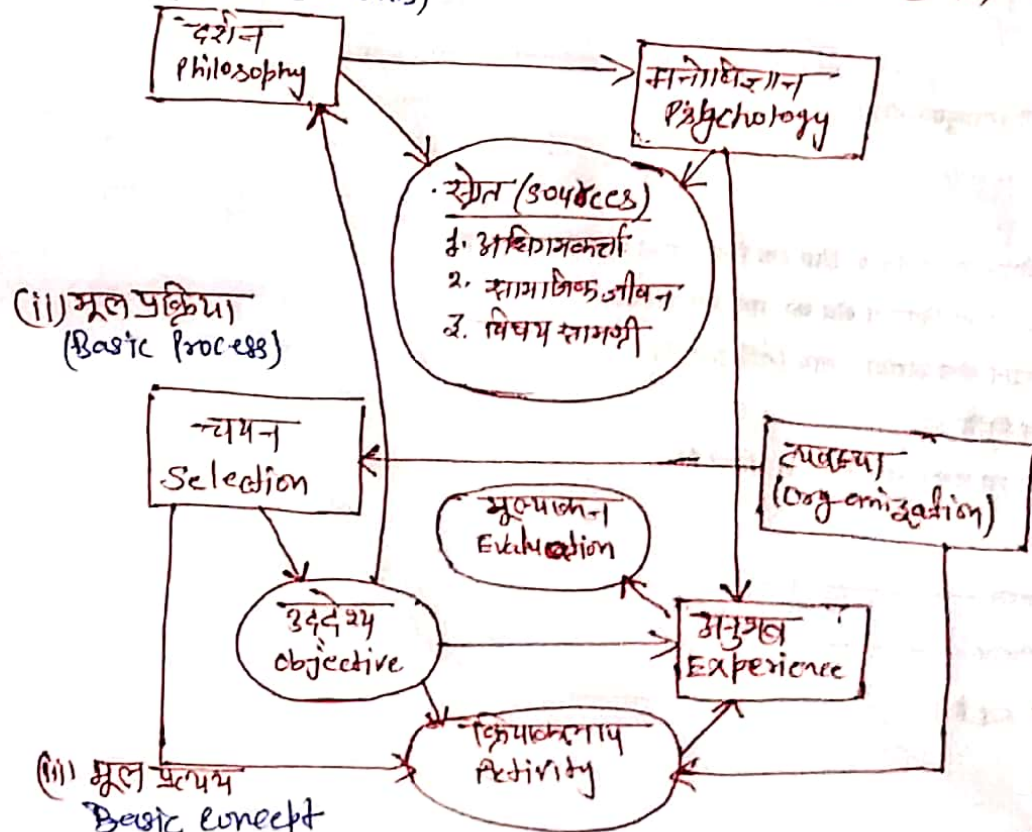 दर्शन
Philosophy
मनोविज्ञान
Psychology
स्रोत (sources)
1. अधिगमकर्त्ता
2. सामाजिक जीवन
3. विषय सामग्री
(ii) मूल प्रक्रिया
(Basic Process)
चयन
Selection
व्यवस्था
(Organization)
मूल्यांकन
Evaluation
उद्देश्य
objective
अनुभव
Experience
क्रियाकलाप
Activity
(iii) मूल प्रत्यय
Basic Concept